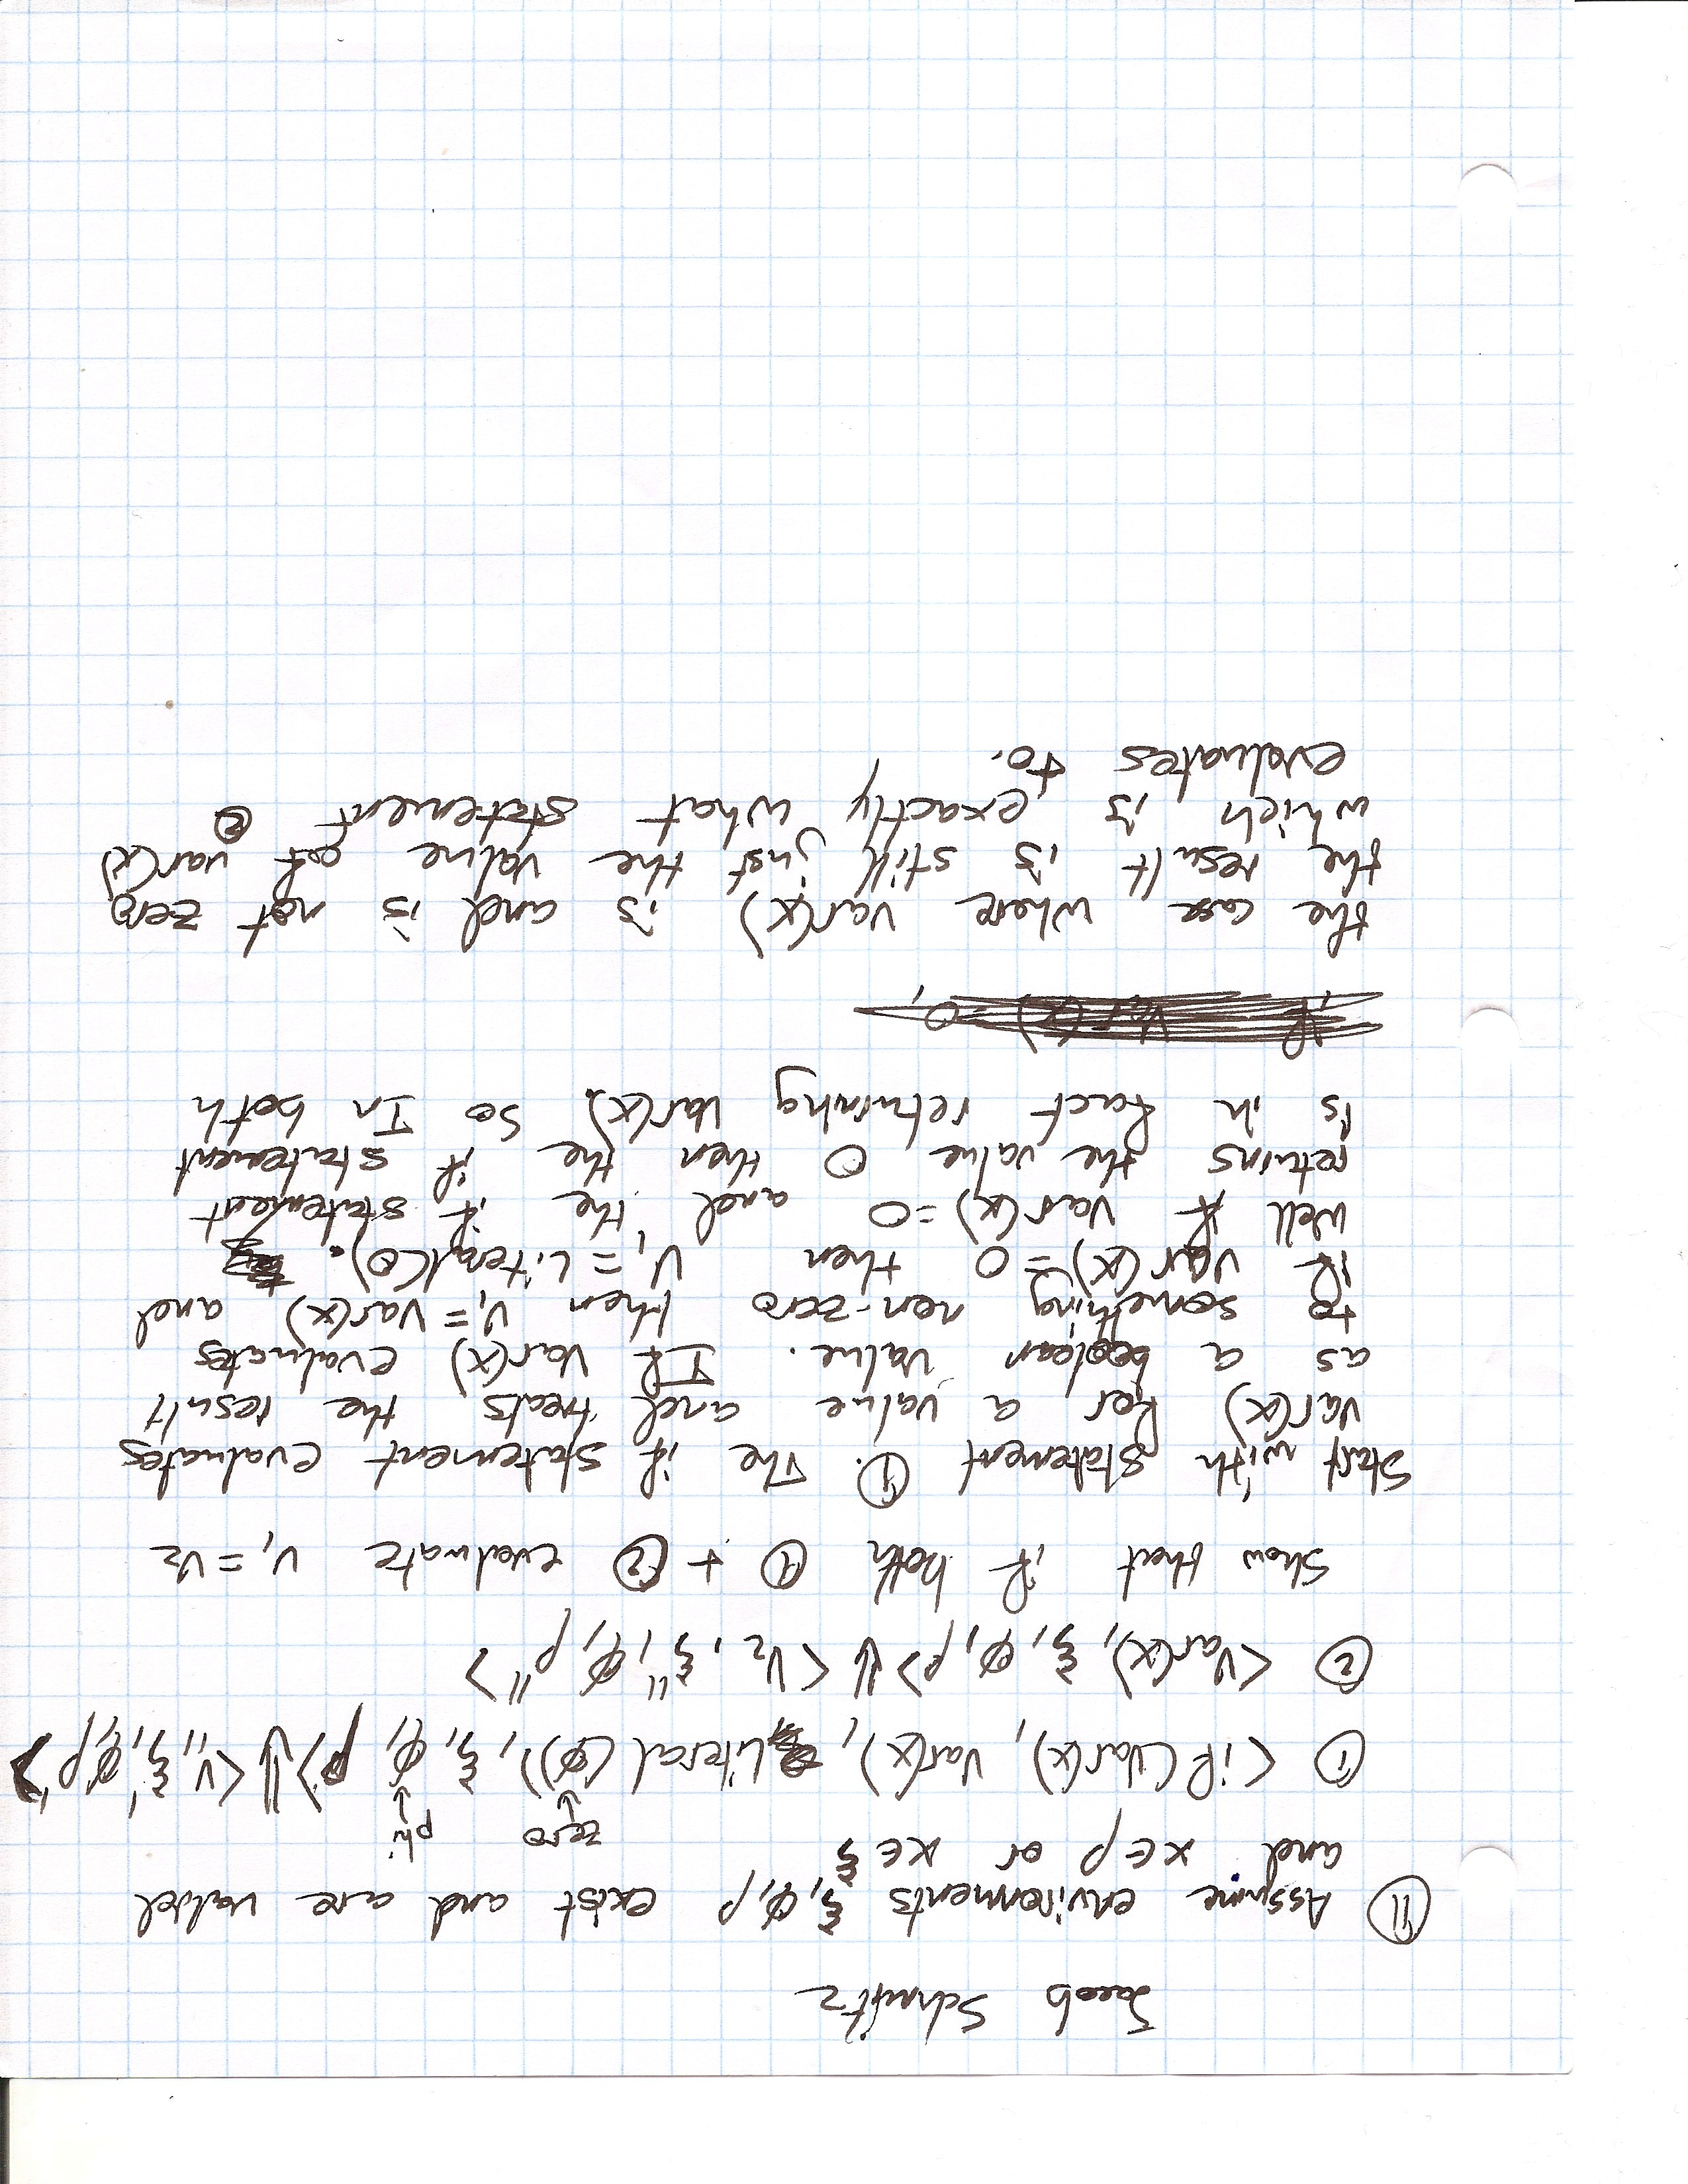 Jacob Schmitz
⑪ Assume environments ξ, ϕ, ρ exist and are valid
and x ∈ ρ or x ∈ ξ
zero phi
① <if (Var(x), Var(x), Literal (0)), ξ, ϕ, ρ> ⇓ <v₁, ξ', ϕ, ρ'>
② <Var(x), ξ, ϕ, ρ> ⇓ <V₂, ξ'', ϕ, ρ''>
Show that if both ① + ② evaluate v₁ = v₂
Start with statement ①. The if statement evaluates
var(x) for a value and treats the result
as a boolean value. If Var(x) evaluates
to something non-zero then v₁ = Var(x) and
if var(x) = 0 then V₁ = Literal(0).
Well if Var(x) = 0 and the if statement
returns the value 0 then the if statement
is in fact returning Var(x). So In both
if Var(x) = 0,
the case where var(x) is and is not zero
the result is still just the value of var(x)
which is exactly what statement ②
evaluates to.